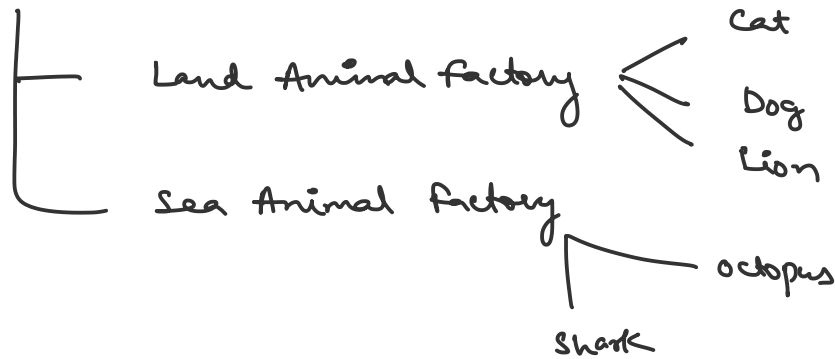 Cat
Land Animal Factory
Dog
Lion
Sea Animal Factory
Octopus
Shark